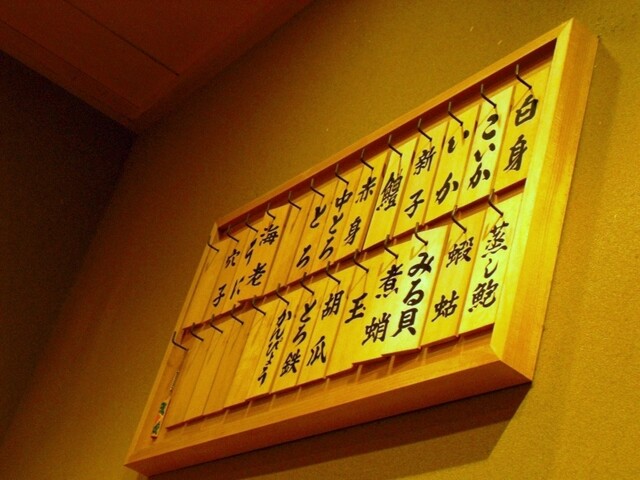 白身
こいか
いか
新子
鰹
赤身
中とろ
とろ
海老
うに
穴子
蒸し鮑
蝦蛄
みる貝
煮蛸
玉
胡瓜
とろ鉄
かんぴょう